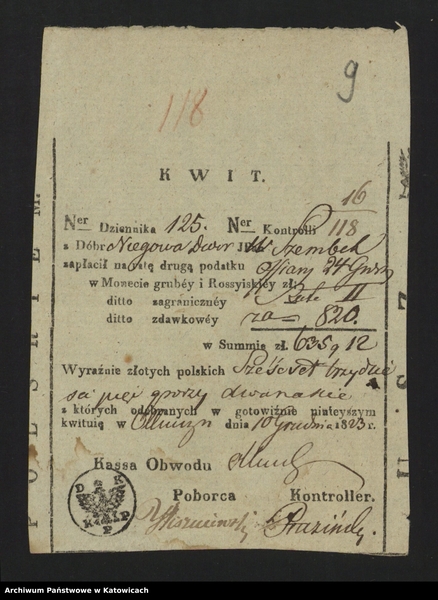 9
118
KWIT.
16
Ner Dziennika 125. Ner Kontrolli 118
z Dóbr Niegowa Dwor JW Szembek
zapłacił na ratę drugą podatku Ofiary 24 Groszy
w Monecie grubéy i Rossyiskiéy zł: Rate II
ditto zagranicznéy
ditto zdawkowéy za 820.
w Summie zł. 635 g 12
Wyraźnie złotych polskich Sześćset trzydzie
sci pięć groszy dwanaście
z których odebranych w gotowiźnie ninieyszym
kwituię w Olkuszu dnia 10 Grudnia 1823 r.
Kassa Obwodu Olkusz
Poborca Kontroller.
D K K P P
Archiwum Państwowe w Katowicach